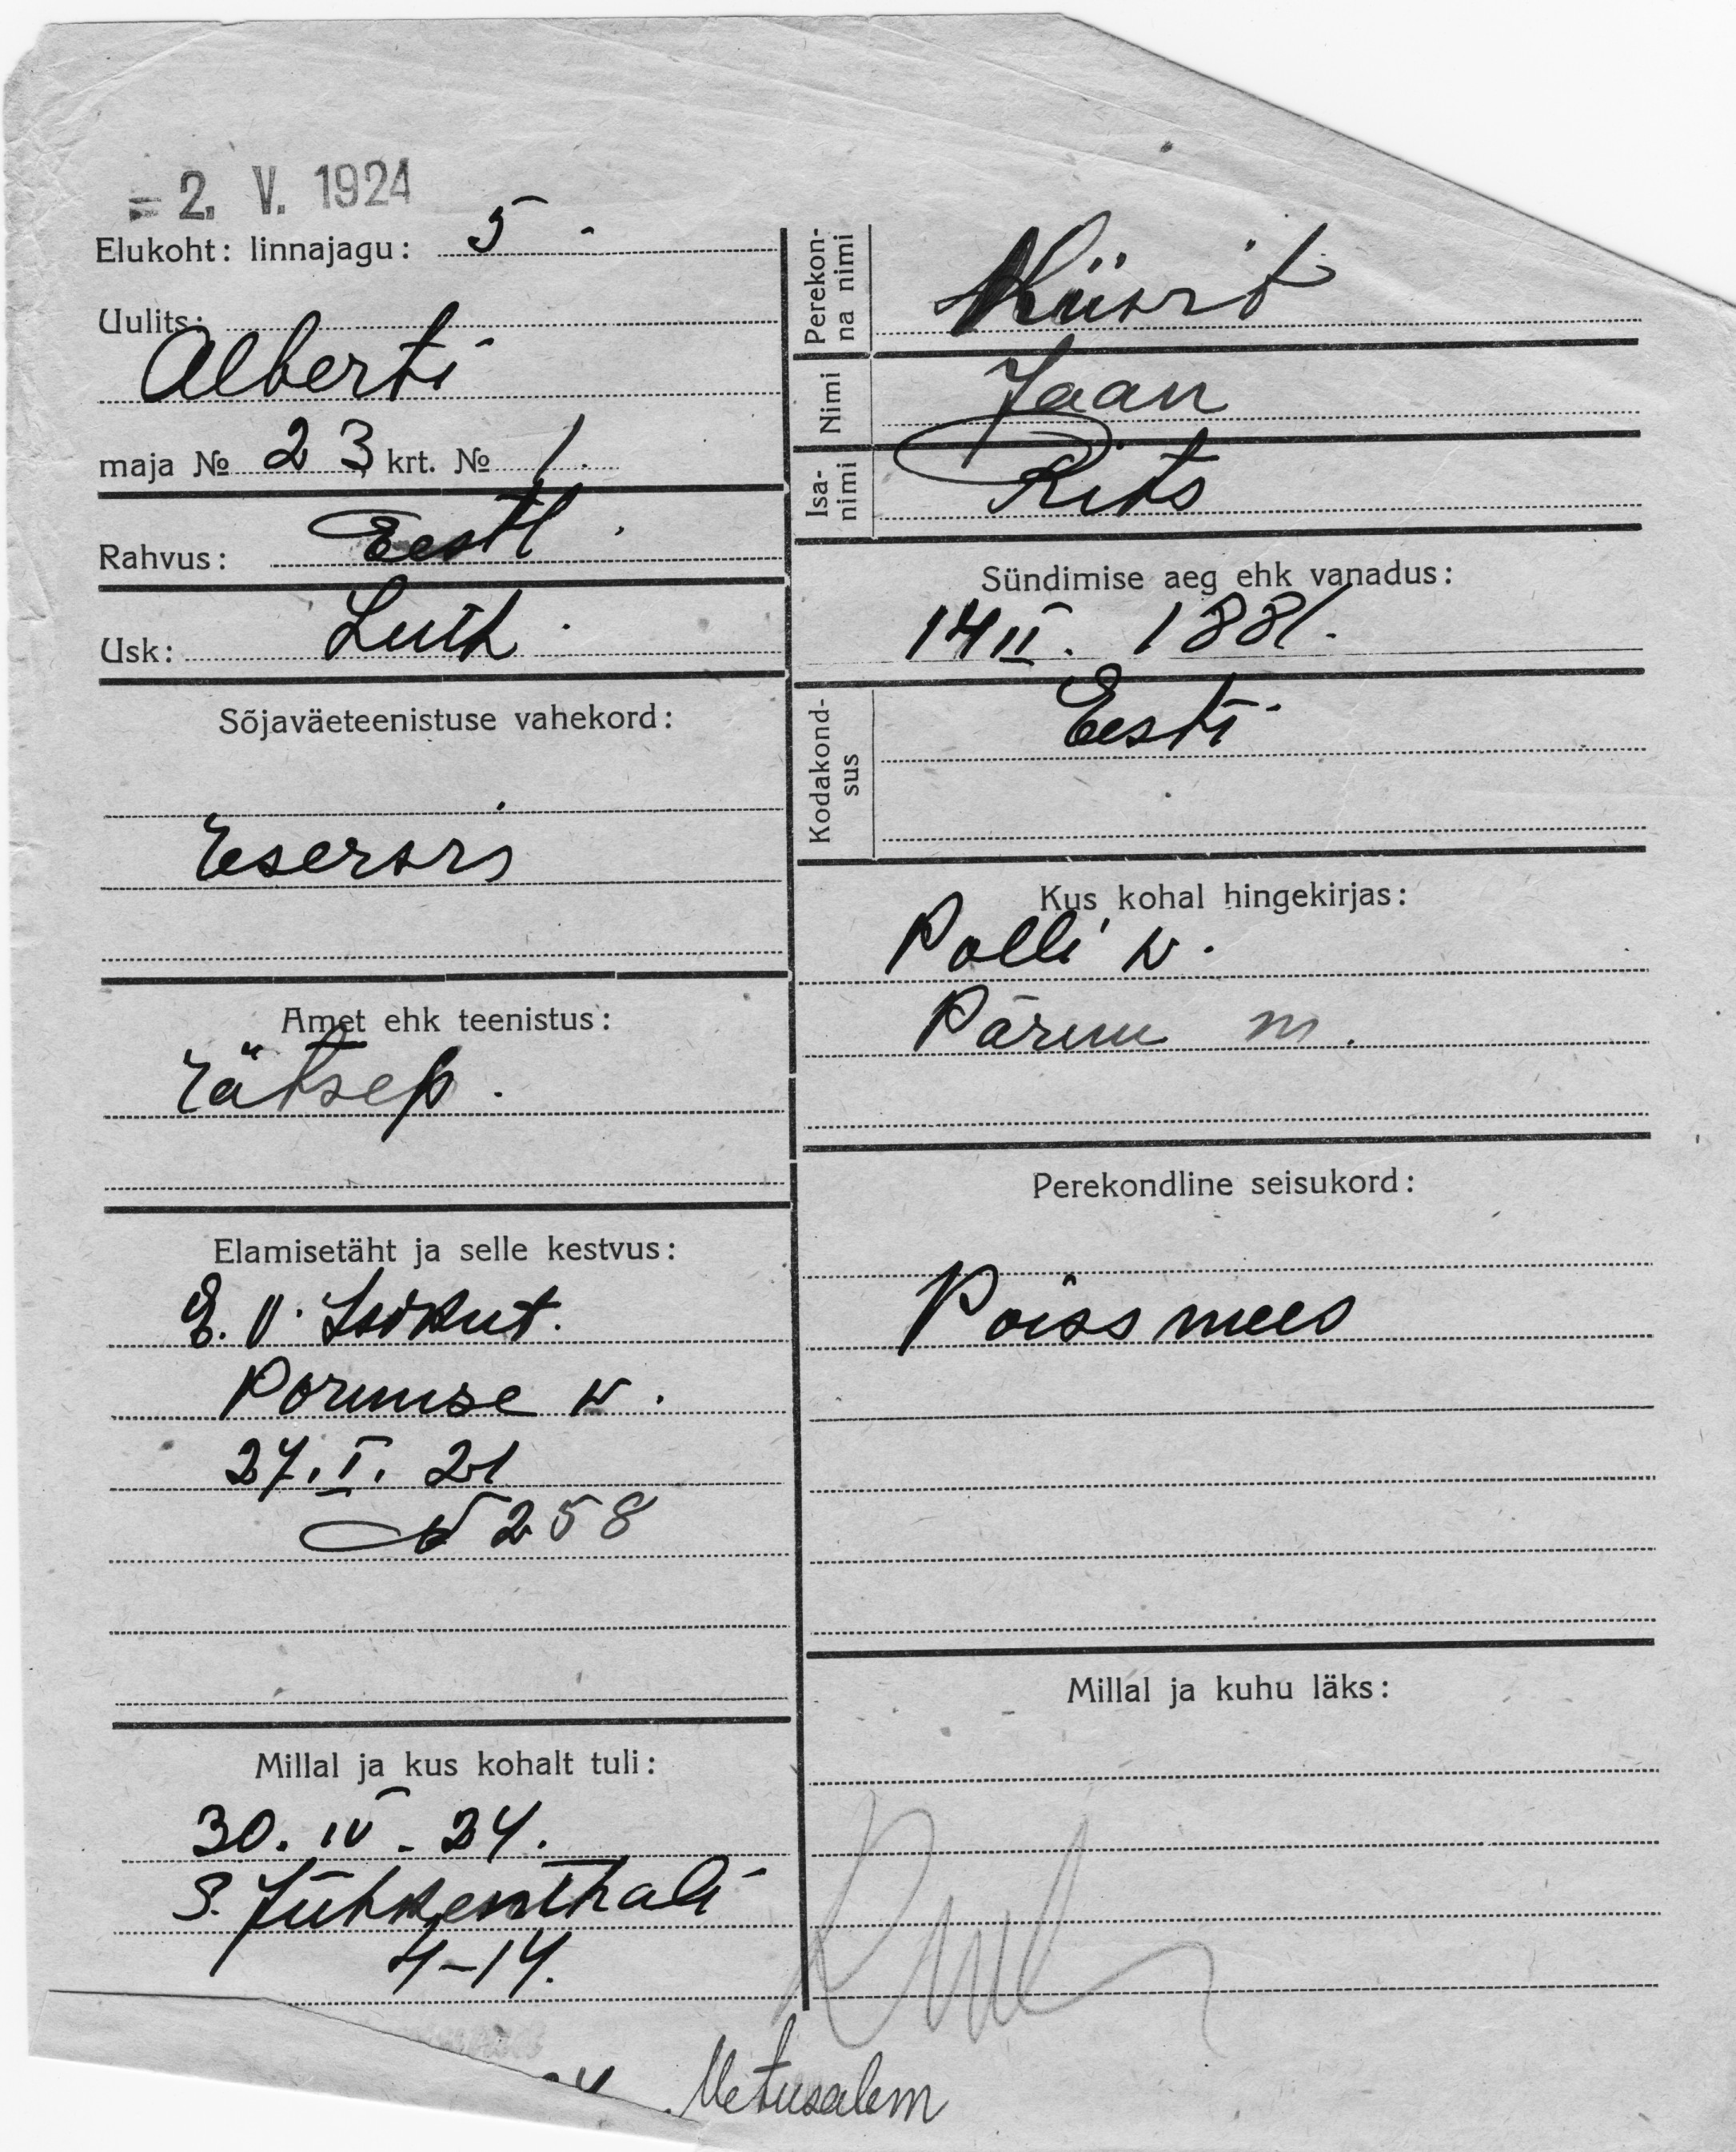 2. V. 1924
Elukoht: linnajagu: 5 -
Uulits:
Alberti
maja № 23 krt. № 1.
Rahvus: Eesti
Usk: Luth.
Sõjaväeteenistuse vahekord:
Amet ehk teenistus:
rätsep.
Elamisetäht ja selle kestvus:
E. V. Isikut.
w.
27. I. 21
N 258
Millal ja kus kohalt tuli:
30. IV. 24.
S. Jühkenthali
4-14.
Perekonna nimi
Nimi Jaan
Isanimi Rits
Sündimise aeg ehk vanadus:
14 II. 1881.
Kodakondsus Eesti
Kus kohal hingekirjas:
Polli w.
Pärnu m.
Perekondline seisukord:
Poissmees
Millal ja kuhu läks:
Metusalem